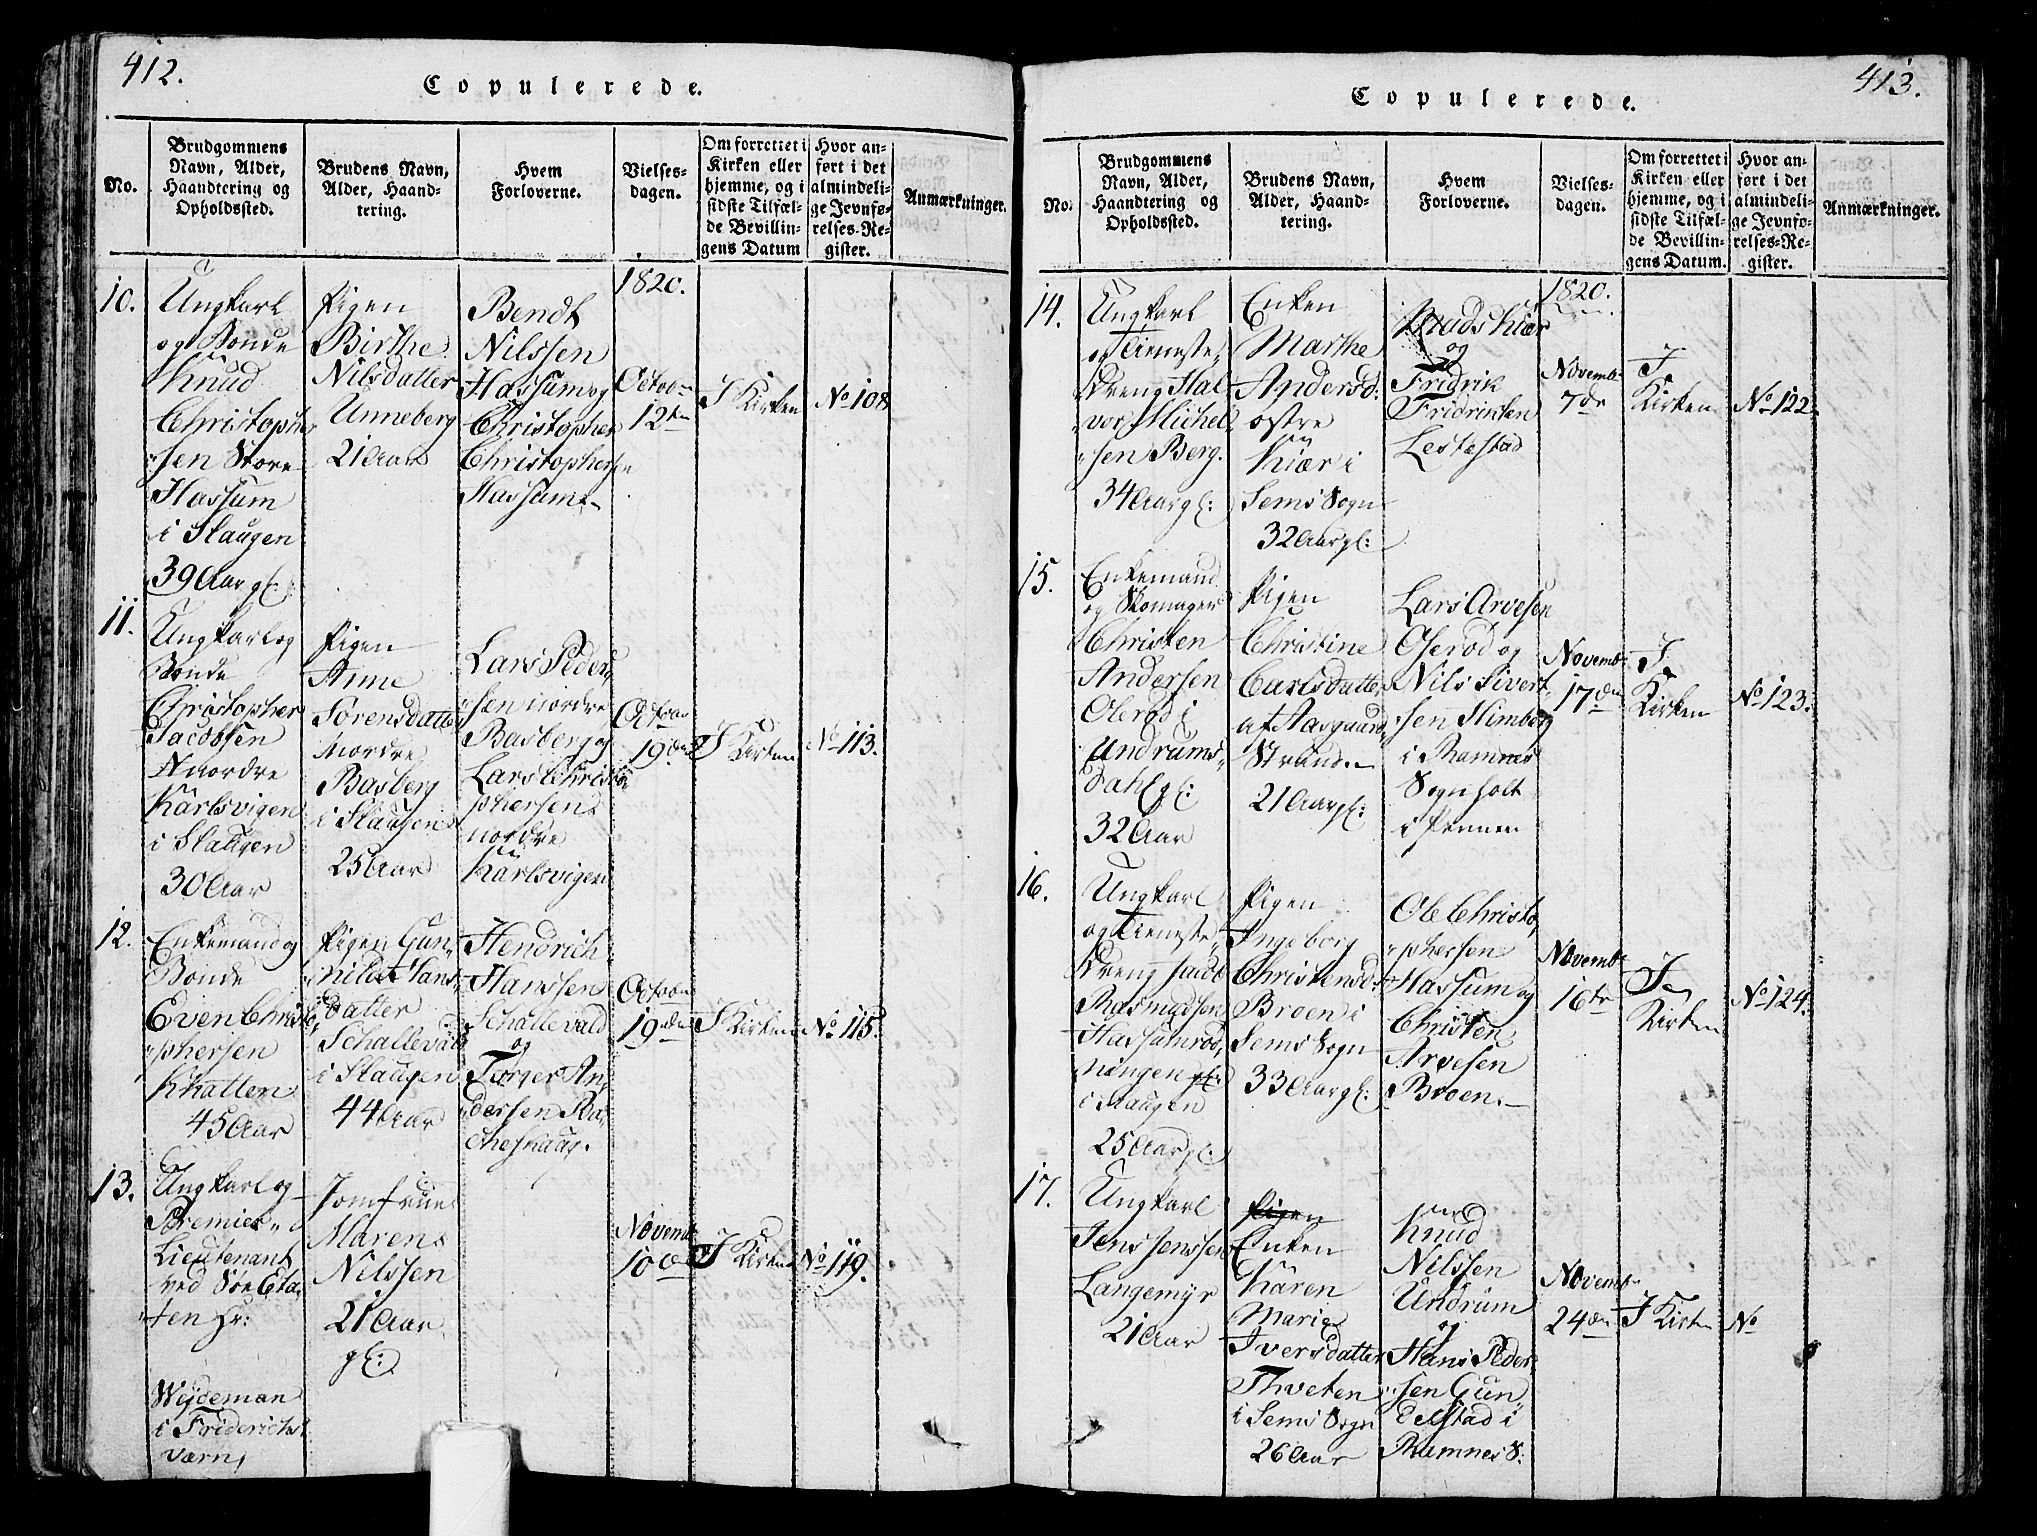 412.
Copulerede.
No.
Brudgommens
Navn, Alder,
Haandtering og
Opholdssted.
Brudens Navn,
Alder, Haand-
tering.
Hvem
Forloverne.
Vielses-
dagen.
Om forrettet i
Kirken eller
hjemme, og i
sidste Tilfæl-
de Bevillin-
gens Datum
Hvor an-
ført i det
almindeli-
ge Jevnfø-
relses-Re-
gister.
Anmærkninger.
1820.
10.
Ungkarl
og Bonde
Knud
Christophe
sen Store
Hassum
i Slaugen
39 Aar gl:
Pigen
Birthe
Nilsdatter
Unneberg
21 Aar
Bendt
Nilssen
Hassum og
Christopher
Christophersen
Hassum
Octobr
12te
I Kirken
No 108
11.
Ungkarl og
Bonde
Christopher
Jacobsen
Nordre
Karlsvigen
i Slaugen
30 Aar
Pigen
Anne
Sørensdatter
Nordre
Basberg
i Slaugen
25 Aar
Lars Peder
sen nordre
Basberg og
Lars Christo
phersen
nordre
Karlsvigen
Octobr
19de
I Kirken
No 113.
12.
Enkemand og
Bonde
Even Christo
phersen
Knatten
45 Aar
Pigen Gun
nild Hans
datter
Schallevald
i Slaugen
44 Aar
Hendrich
Hanssen
Schallevald
og
Torger An
dersen Ra
cheshaug.
Octobr
19de
I Kirken
No 115.
13.
Ungkarl og
Premier
Lieutenant
ved Søe Eta
ten Hr:
Weydeman
i Friderichs
værn
Jomfrue
Maren
Nilssen
21 Aar
gl:
Novemb
10de
I Kirken
No 119.
413.
Copulerede.
No.
Brudgommens
Navn, Alder,
Haandtering og
Opholdssted.
Brudens Navn,
Alder, Haand-
tering.
Hvem
Forloverne.
Vielses-
dagen.
Om forrettet i
Kirken eller
hjemme, og i
sidste Tilfæl-
de Bevillin-
gens Datum.
Hvor an-
ført i det
almindeli-
ge Jevnfø-
relses-Re-
gister.
Anmærkninger.
1820.
14.
Ungkarl
og Tieneste
Dreng Hal
vor Michel
sen Berg.
34 Aar gl:
Enken
Marthe
Andersd:
østre
Kiær i
Sems Sogn
32 Aar gl:
Mads Kiær
og
Fridrik
Fridriksen
Lestestad
Novemb
7de
I
Kirken
No 122.
15.
Enkemand
og Skomager
Christen
Andersen
Olerød i
Undrums
dahl gl:
32 Aar
Pigen
Christine
Carlsdatter
af Aasgaard
Strand
21 Aar gl:
Lars Arvesen
Oserød og
Nils Sivert
sen Himberg
i Ramnes
Sogn holt
i Pennen
Novemb
17de
I
Kirken
No 123.
16.
Ungkarl
og Tieneste
Dreng Jacob
Rasmussen
Hassumrød
ningen gl:
i Slaugen
25 Aar gl:
Pigen
Ingeborg
Christensd:
Broen i
Sems Sogn
33 Aar gl:
Ole Christo
phersen
Hassum og
Christen
Arvesen
Broen.
Novemb
16te
I
Kirken
No 124.
17.
Ungkarl
Jens Jenssen
Langemyr
21 Aar
Pigen
Enken
Karen
Marie
Iversdatter
Thveten
i Sems Sogn
26 Aar
Knud
Nilssen
Undrum
og
Hans Peder
sen Gun
delstad i
Ramnes S:
Novemb
24de
I Kirken
No